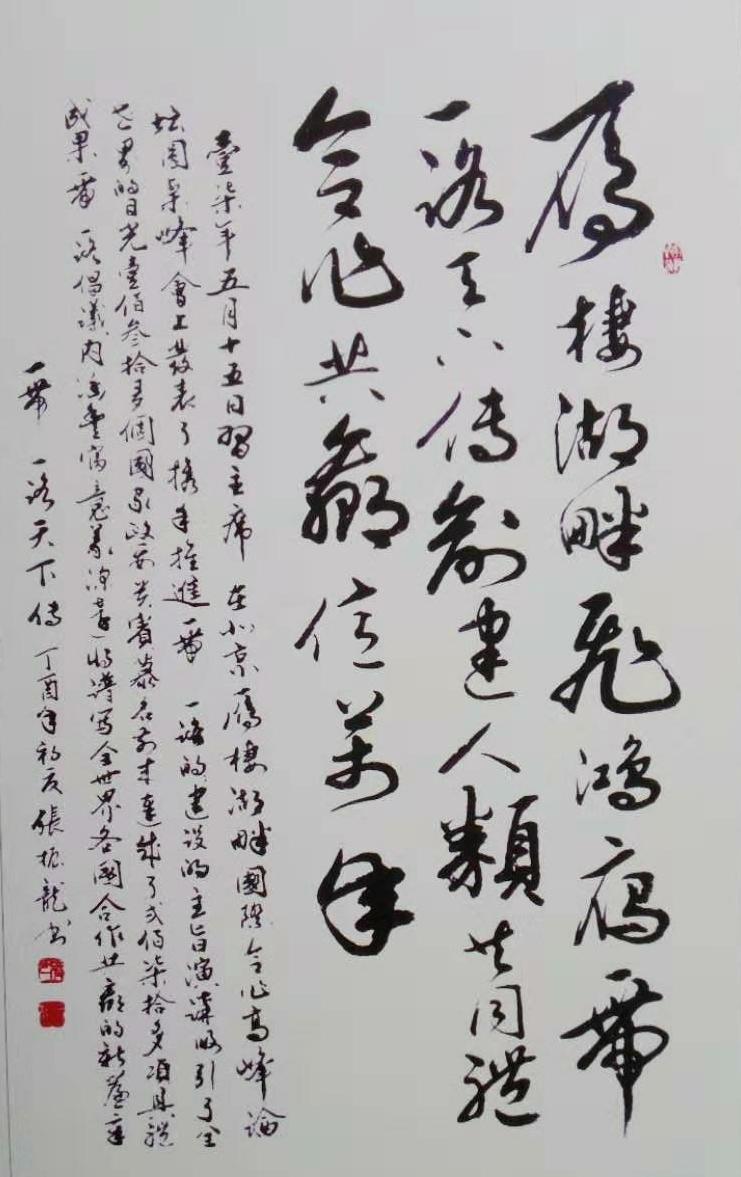 雁棲湖畔飛鴻雁一帶
一路天下傳創建人類共同體
合作共贏信萬年
壹柒年五月十五日習主席在北京雁棲湖畔國際合作高峰論
壇圓桌峰會上發表了攜手推進一帶一路的建設的主旨演講吸引了全
世界的目光壹佰叁拾多個國家政要貴賓慕名前來達成了弍佰柒拾多項具體
成果一帶一路倡議内涵豐富意義深遠將譜寫全世界各國合作共贏的新篇章
一帶一路天下傳丁酉年初夏張振龍書